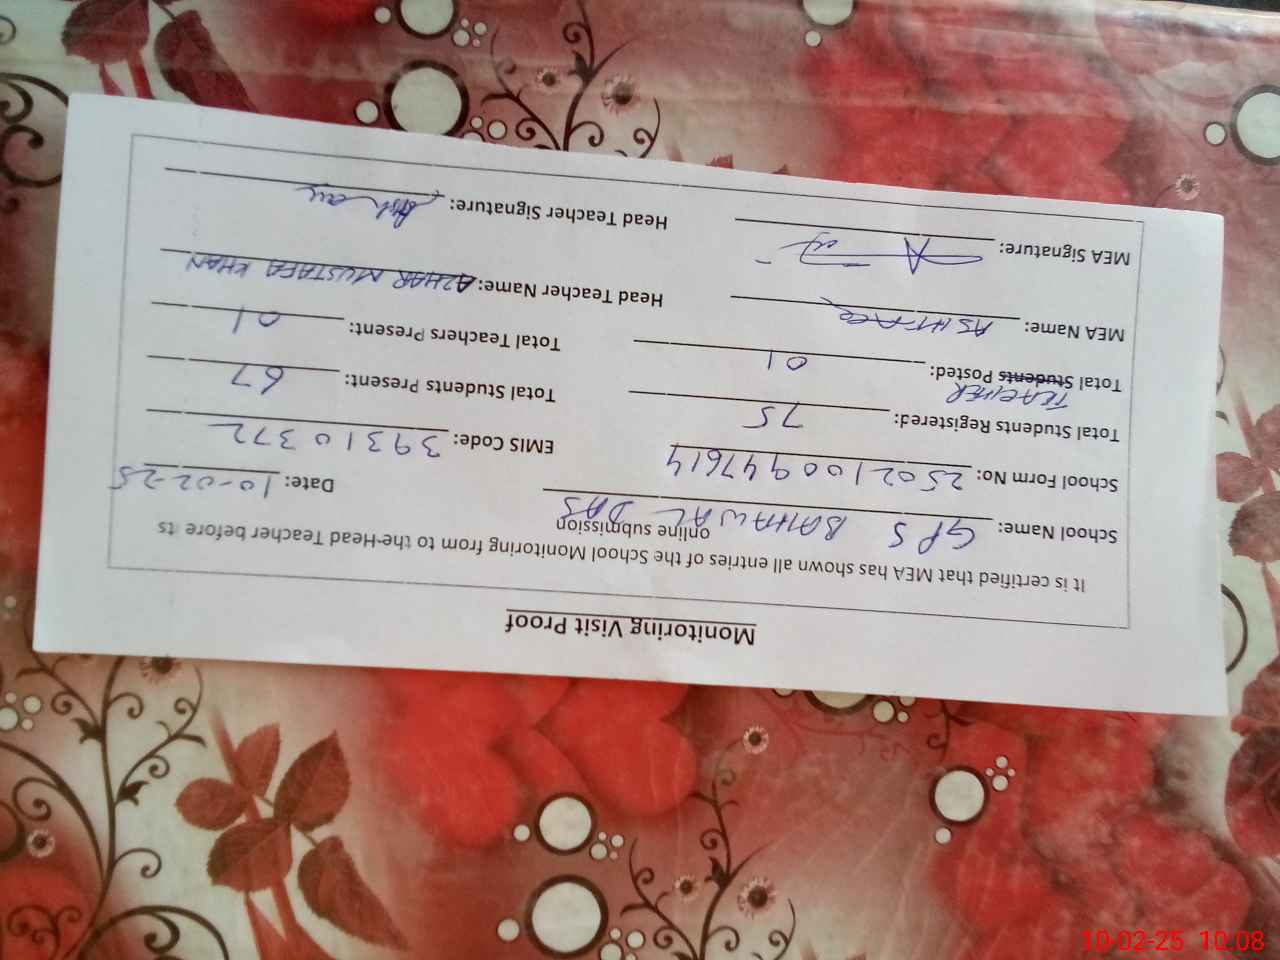 Monitoring Visit Proof
It is certified that MEA has shown all entries of the School Monitoring from to the Head Teacher before its
online submission
School Name: GPS BAHAWAL DAS Date: 10-02-25
School Form No: 2502100947614 EMIS Code: 39310372
Total Students Registered: 75 Total Students Present: 67
TEACHER
Total Students Posted: 01 Total Teachers Present: 01
MEA Name: ASHTAQ Head Teacher Name: AZHAR MUSTAFA KHAN
MEA Signature: Head Teacher Signature:
10-02-25 10:08